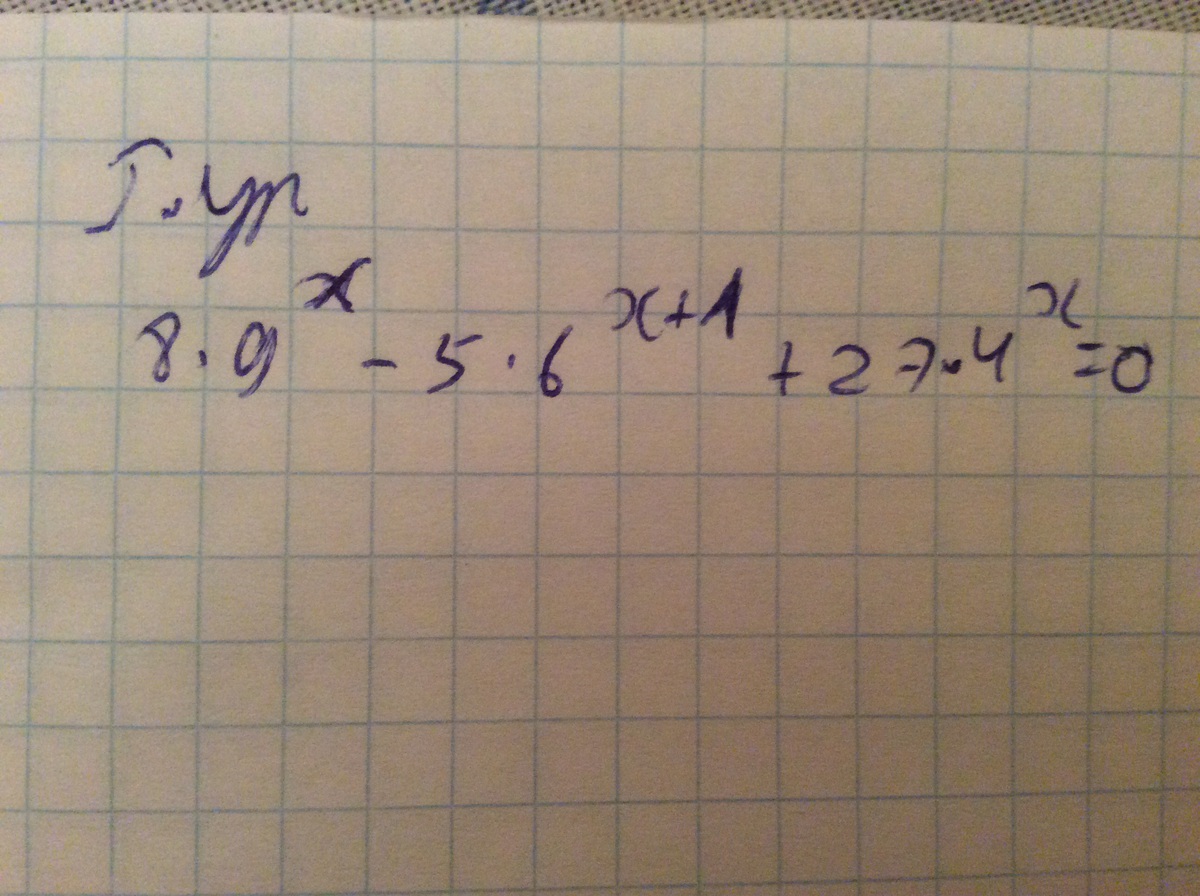 Г.ур
8·9^x - 5·6^x+1 + 27·4^x = 0